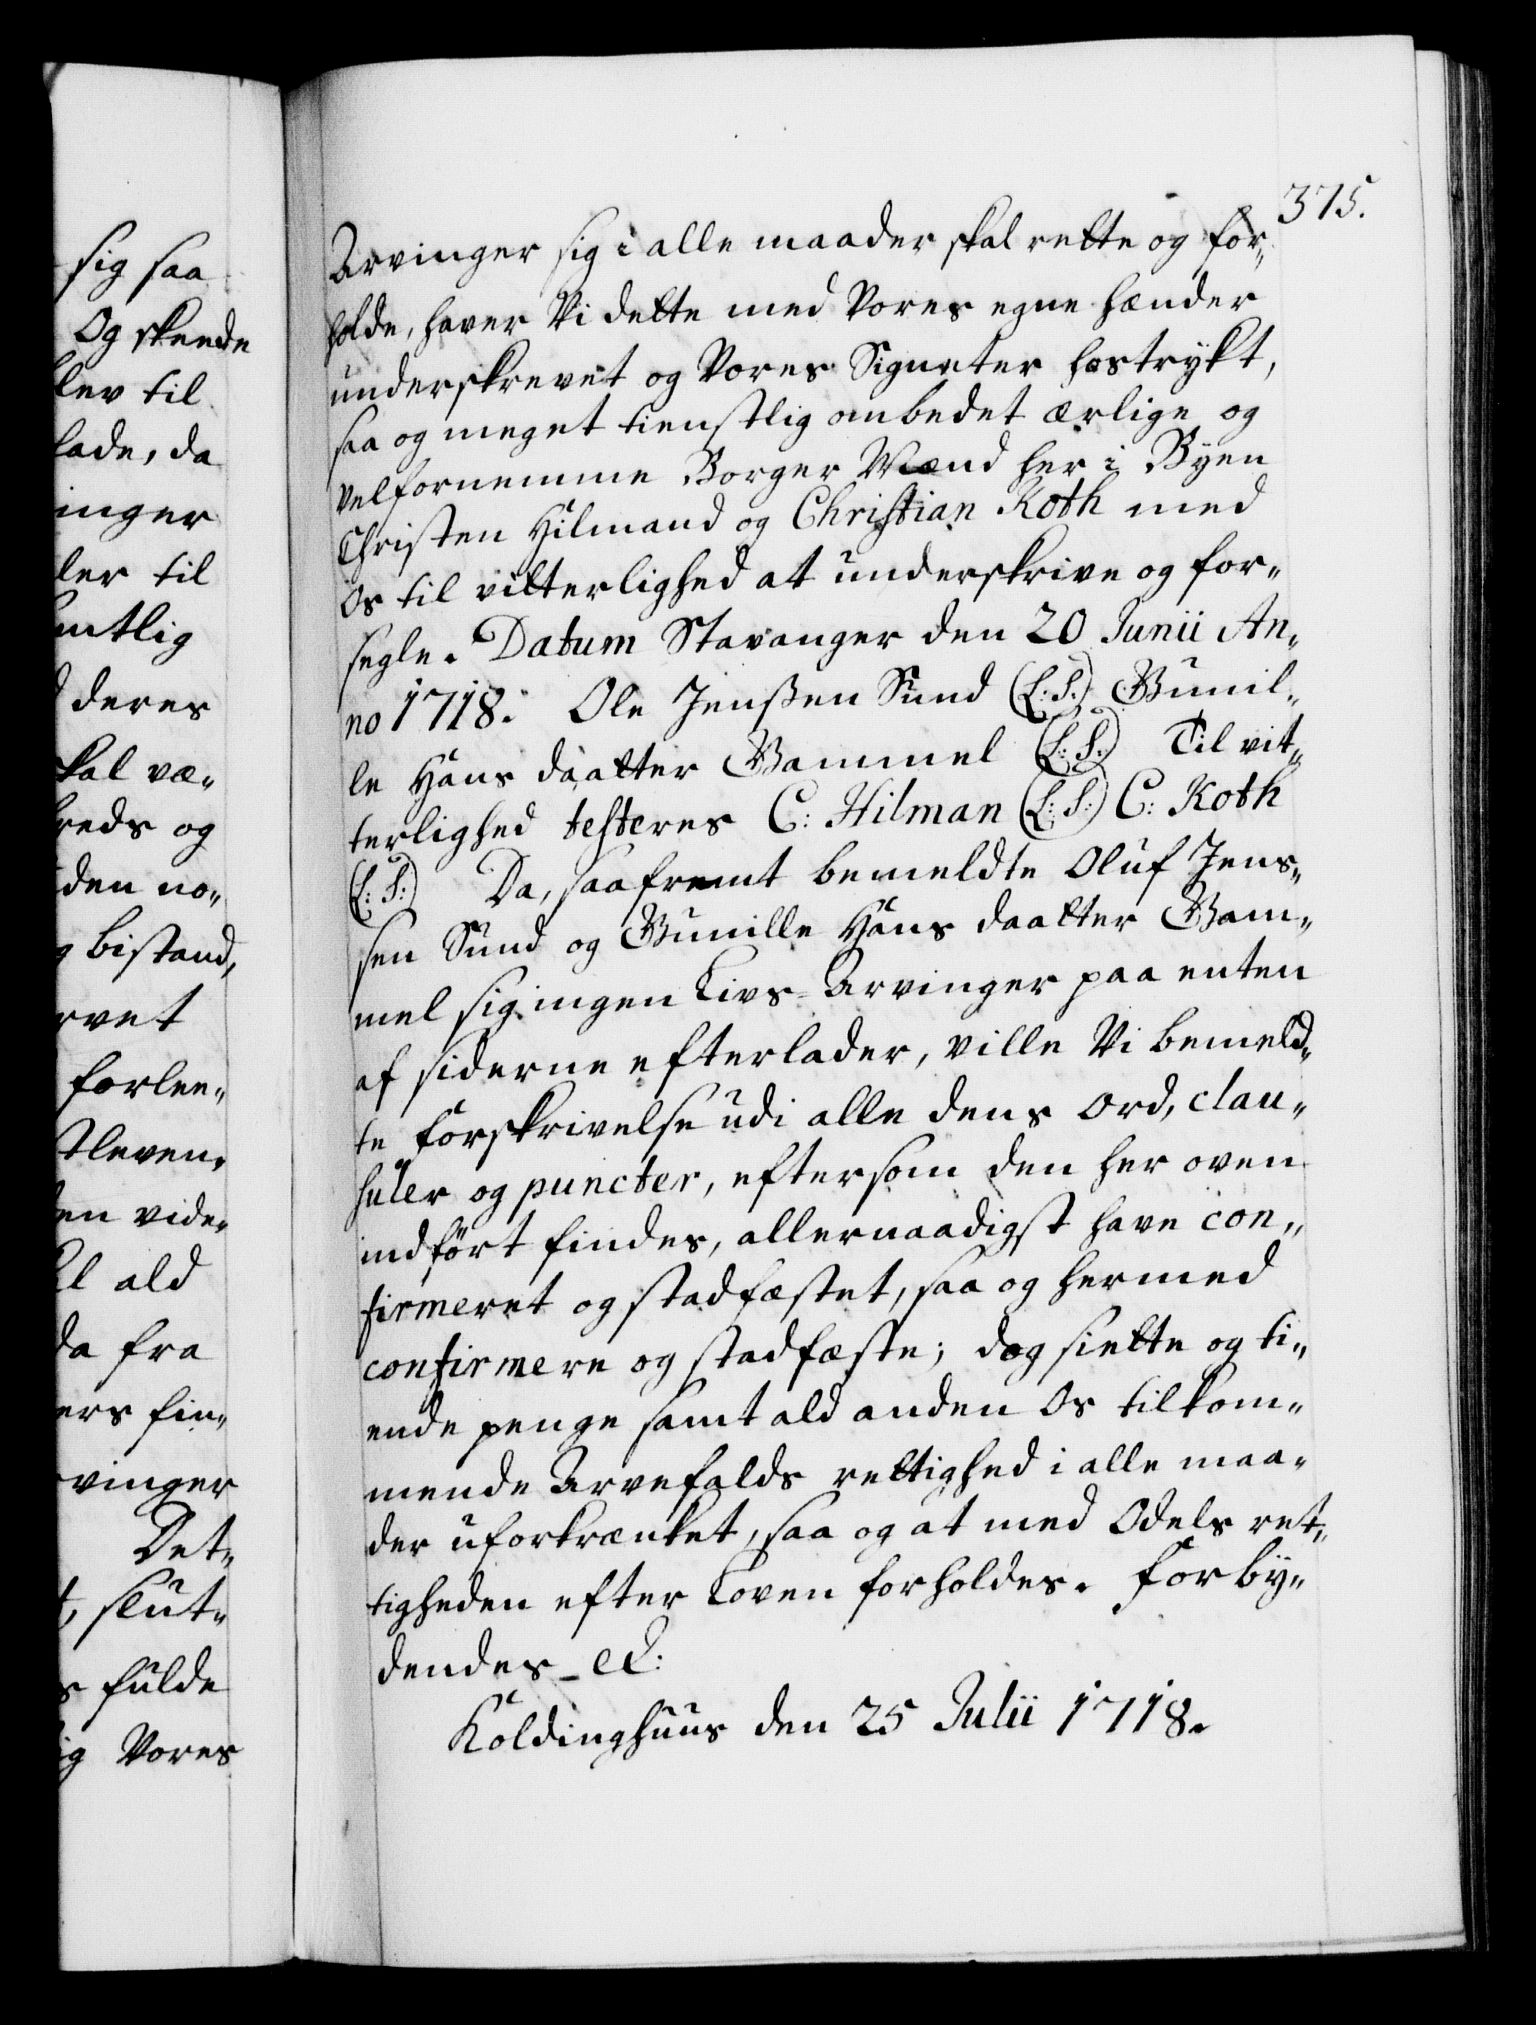 sig saa
Og skeede
lev til
lade, da
inger
ler til
mtlig
deres
kal væ„
reds og
den no„
bistand,
rvet
forlee„
tleven„
en vide„
l ald
da fra
ers fin„
vinger
Det„
t, slut„
s fulde
ig Vores
375.
Arvinger sig i alle maader skal rette og for„
holde, haver Vi dette med Vores egne hænder
underskrevet og Vores Signeter hostrykt,
saa og meget tienstlig ombedet ærlige og
velfornemme Borger Mænd her i Byen
Christen Hilmand og Christian Koth med
Os til vitterlighed at underskrive og for„
segle. Datum Stavanger den 20 Junii An„
no 1718. Ole Jenßen Sund (L: S:) Gunil„
le Hans daatter Gammel (L: S:) Til vit„
terlighed testeres C: Hilman (L: S:) C: Koth
(L: S:) Da, saafremt bemeldte Oluf Jens„
sen Sund og Gunille Hans daatter Gam„
mel sig ingen Livs-Arvinger paa enten
af siderne efterlader, ville Vi bemeld„
te Forskrivelse udi alle dens Ord, clau„
suler og puncter, eftersom den her oven
indført findes, allernaadigst have con„
firmeret og stadfæstet, saa og hermed
confirmere og stadfæste; dog siette og ti„
ende penge samt ald anden Os tilkom„
mende Arvefalds rettighed i alle maa„
der uforkrænket, saa og at med Odels ret„
tigheden efter Loven forholdes. Forby„
dendes _ etc:
Koldinghuus den 25 Julii 1718.